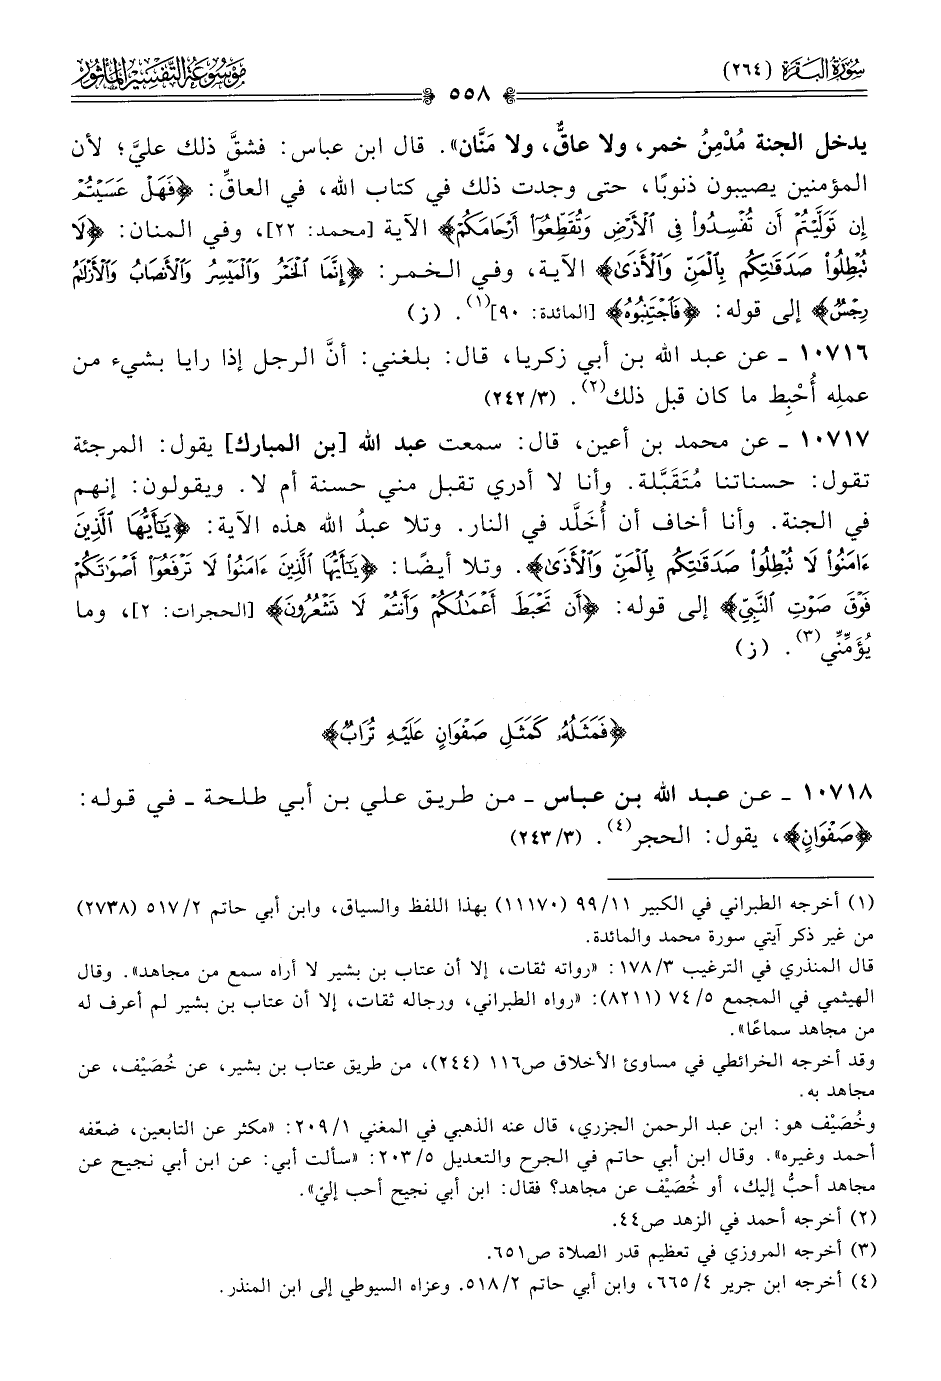 سورة البقرة (٢٦٤)
٥٥٨
موسوعة التفسير المأثور
يدخل الجنة مُدْمِنُ خمر، ولا عاقٌّ، ولا مَنَّان». قال ابن عباس: فشقَّ ذلك عليَّ؛ لأن
المؤمنين يصيبون ذنوبًا، حتى وجدت ذلك في كتاب الله، في العاقِّ: ﴿فَهَلْ عَسَيْتُمْ
إِن تَوَلَّيْتُمْ أَن تُفْسِدُوا۟ فِى ٱلْأَرْضِ وَتُقَطِّعُوٓا۟ أَرْحَامَكُمْ﴾ الآية [محمد: ٢٢]، وفي المنان: ﴿لَا
تُبْطِلُوا۟ صَدَقَـٰتِكُم بِٱلْمَنِّ وَٱلْأَذَىٰ﴾ الآية، وفي الخمر: ﴿إِنَّمَا ٱلْخَمْرُ وَٱلْمَيْسِرُ وَٱلْأَنصَابُ وَٱلْأَزْلَـٰمُ
رِجْسٌ﴾ إلى قوله: ﴿فَٱجْتَنِبُوهُ﴾ [المائدة: ٩٠](١). (ز)
١٠٧١٦ ـ عن عبد الله بن أبي زكريا، قال: بلغني: أنَّ الرجل إذا رايا بشيء من
عمله أُحْبِط ما كان قبل ذلك(٢). (٢٤٢/٣)
١٠٧١٧ ـ عن محمد بن أعين، قال: سمعت عبد الله [بن المبارك] يقول: المرجئة
تقول: حسناتنا مُتَقَبَّلة. وأنا لا أدري تقبل مني حسنة أم لا. ويقولون: إنهم
في الجنة. وأنا أخاف أن أُخَلَّد في النار. وتلا عبدُ الله هذه الآية: ﴿يَـٰٓأَيُّهَا ٱلَّذِينَ
ءَامَنُوا۟ لَا تُبْطِلُوا۟ صَدَقَـٰتِكُم بِٱلْمَنِّ وَٱلْأَذَىٰ﴾. وتلا أيضًا: ﴿يَـٰٓأَيُّهَا ٱلَّذِينَ ءَامَنُوا۟ لَا تَرْفَعُوٓا۟ أَصْوَٰتَكُمْ
فَوْقَ صَوْتِ ٱلنَّبِيِّ﴾ إلى قوله: ﴿أَن تَحْبَطَ أَعْمَـٰلُكُمْ وَأَنتُمْ لَا تَشْعُرُونَ﴾ [الحجرات: ٢]، وما
يُؤَمِّنِّي(٣). (ز)
﴿فَمَثَلُهُۥ كَمَثَلِ صَفْوَانٍ عَلَيْهِ تُرَابٌ﴾
١٠٧١٨ ـ عن عبد الله بن عباس ـ من طريق علي بن أبي طلحة ـ في قوله:
﴿صَفْوَانٍ﴾، يقول: الحجر(٤). (٢٤٣/٣)
(١) أخرجه الطبراني في الكبير ٩٩/١١ (١١١٧٠) بهذا اللفظ والسياق، وابن أبي حاتم ٥١٧/٢ (٢٧٣٨)
من غير ذكر آيتي سورة محمد والمائدة.
قال المنذري في الترغيب ١٧٨/٣: «رواته ثقات، إلا أن عتاب بن بشير لا أراه سمع من مجاهد». وقال
الهيثمي في المجمع ٧٤/٥ (٨٢١١): «رواه الطبراني، ورجاله ثقات، إلا أن عتاب بن بشير لم أعرف له
من مجاهد سماعًا».
وقد أخرجه الخرائطي في مساوئ الأخلاق ص١١٦ (٢٤٤)، من طريق عتاب بن بشير، عن خُصَيْف، عن
مجاهد به.
وخُصَيْف هو: ابن عبد الرحمن الجزري، قال عنه الذهبي في المغني ٢٠٩/١: «مكثر عن التابعين، ضعّفه
أحمد وغيره». وقال ابن أبي حاتم في الجرح والتعديل ٢٠٣/٥: «سألت أبي: عن ابن أبي نجيح عن
مجاهد أحبُّ إليك، أو خُصَيْف عن مجاهد؟ فقال: ابن أبي نجيح أحب إليّ».
(٢) أخرجه أحمد في الزهد ص٤٤.
(٣) أخرجه المروزي في تعظيم قدر الصلاة ص٦٥١.
(٤) أخرجه ابن جرير ٦٦٥/٤، وابن أبي حاتم ٥١٨/٢. وعزاه السيوطي إلى ابن المنذر.